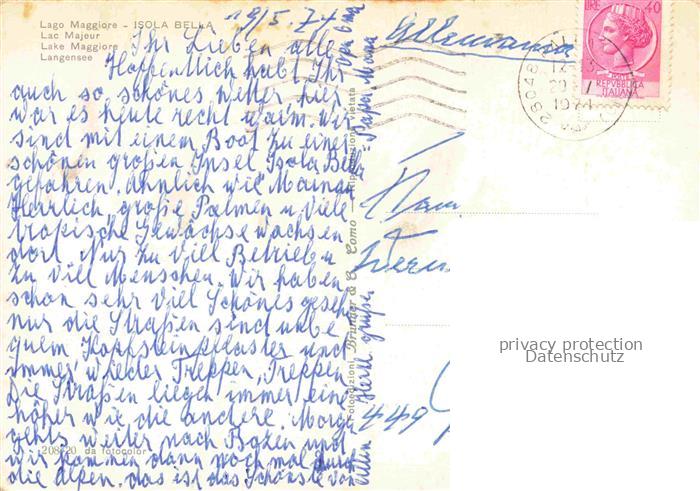 Lago Maggiore - ISOLA BELLA
Lac Majeur
Lake Maggiore
Langensee
19/5.74
Ihr Lieben alle
Hoffentlich habt Ihr
auch so schönes Wetter, hier
war es heute recht warm. Wir
sind mit einem Boot zu einer
schönen großen Insel Isola Bella
gefahren. Ähnlich wie Mainau
Herrlich, große Palmen u. viele
tropische Gewächse wachsen
dort. Nur zu viel Betrieb
zu viel Menschen. Wir haben
schon sehr viel Schönes gesehen
nur die Straßen sind unbe
quem, Kopfsteinpflaster und
immer wieder Treppen, Treppen
Die Straßen liegen immer eine
höher wie die andere. Morgen
gehts weiter nach Bozen und
wir kommen dann noch mal durch
die Alpen, das ist das Schönste von
allem Herzl. grüßen
Papa, Mama
Opa Oma
208/20 da fotocolor
Fotoedizioni Brunner & C. Como - Riproduzione vietata
Allemania
LIRE 40
REPVBBLICA
ITALIANA
28048
1974
Fam
Wern
449
privacy protection
Datenschutz